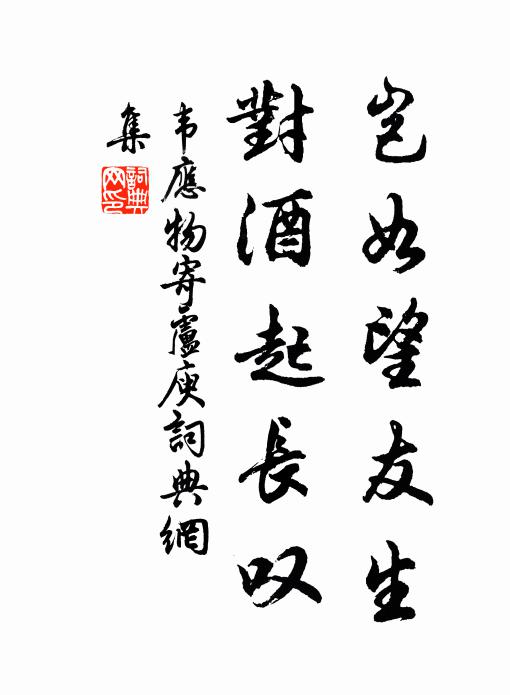 岂如望友生
對酒起長叹
韦應物寄盧庾詞典網
集
詞典
网印